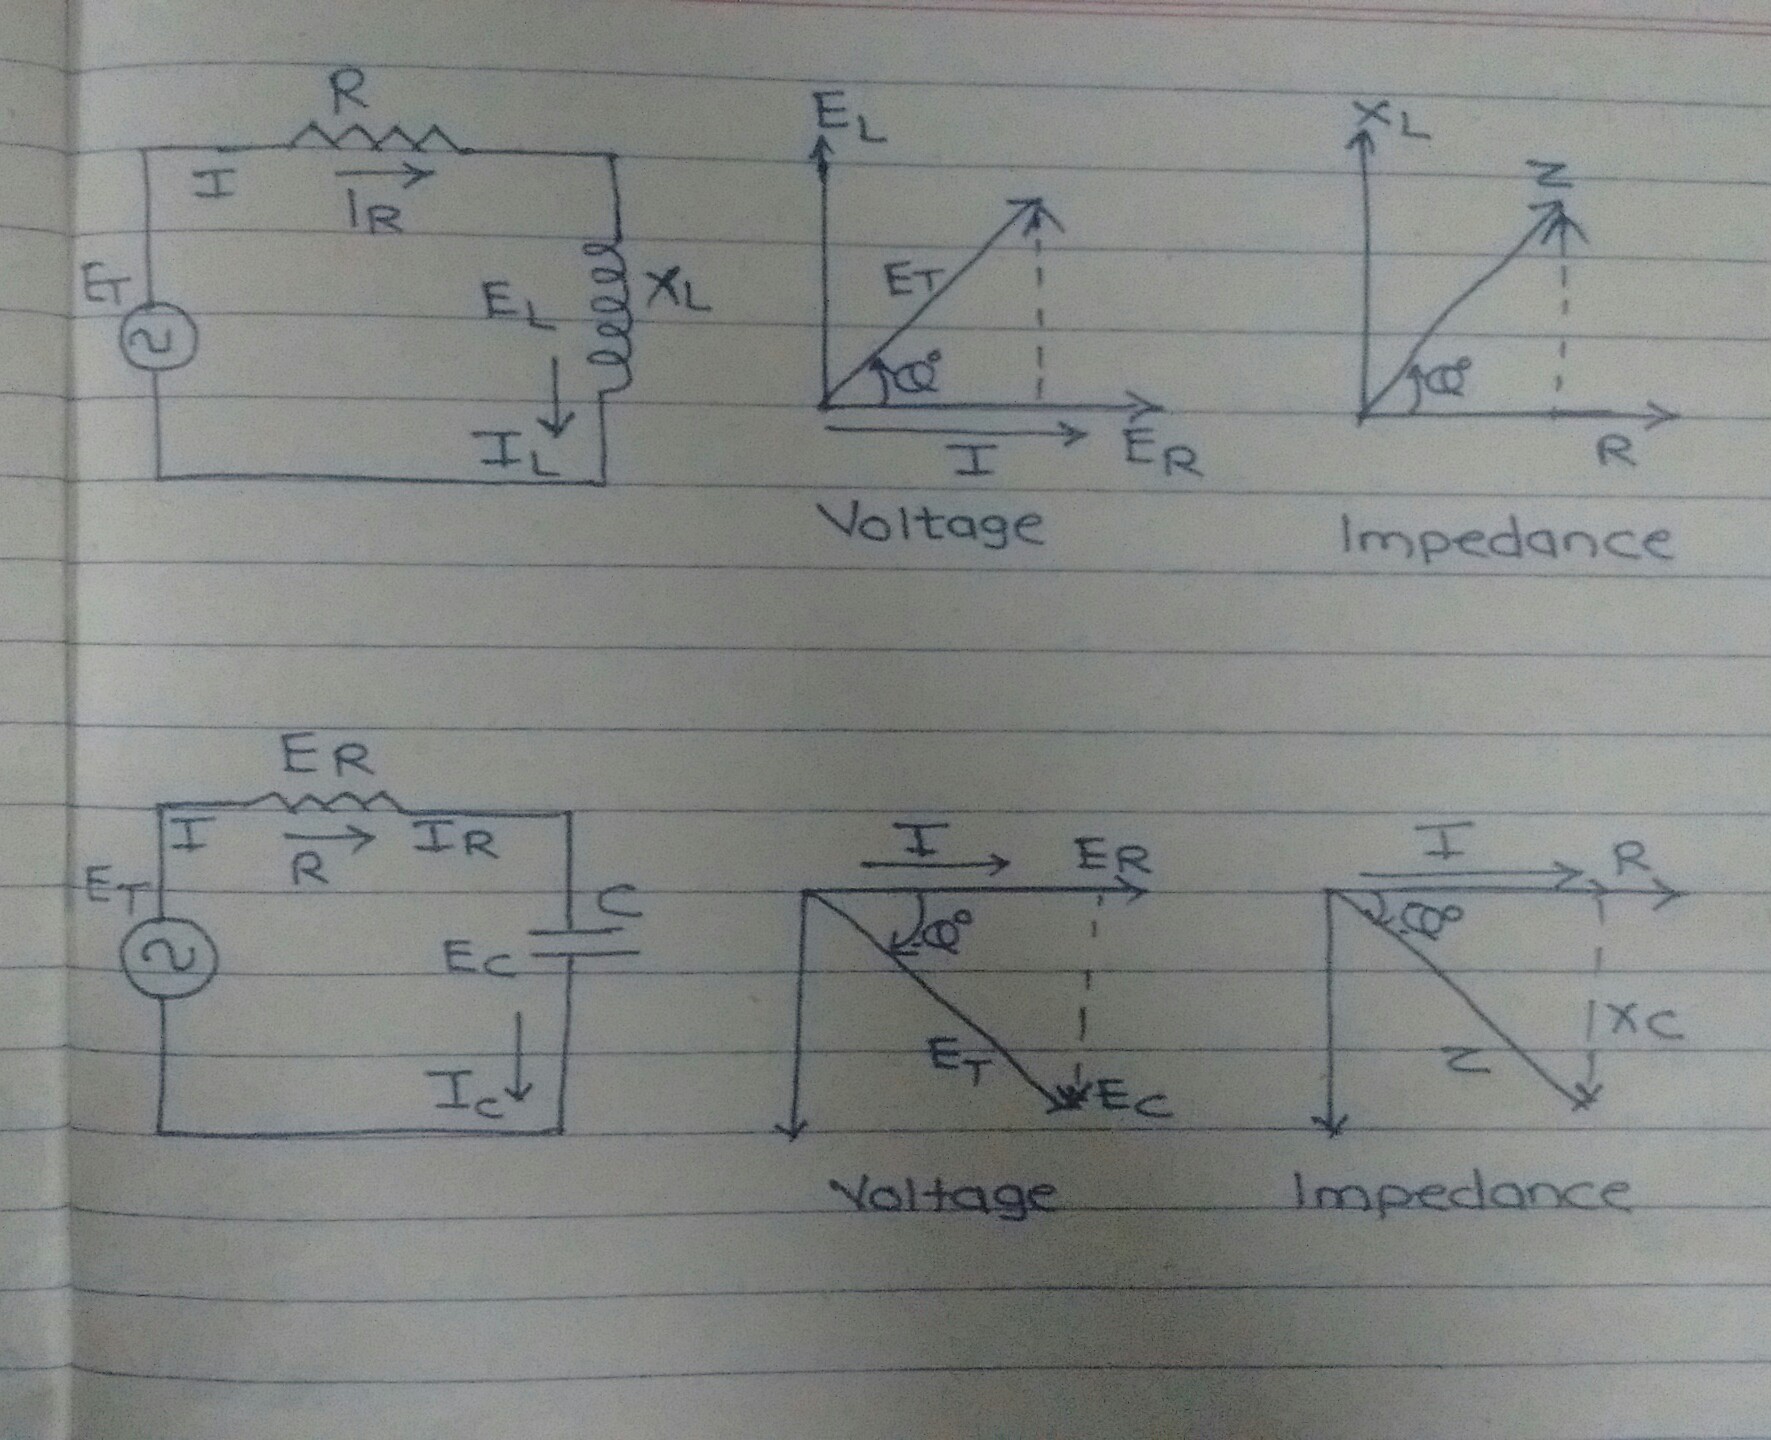 R
I
IR
ET
EL
XL
IL
EL
ET
θ°
I
ER
Voltage
XL
Z
θ°
R
Impedance
ER
I
R
IR
ET
C
EC
IC
I
ER
θ°
ET
EC
Voltage
I
R
θ°
XC
Z
Impedance